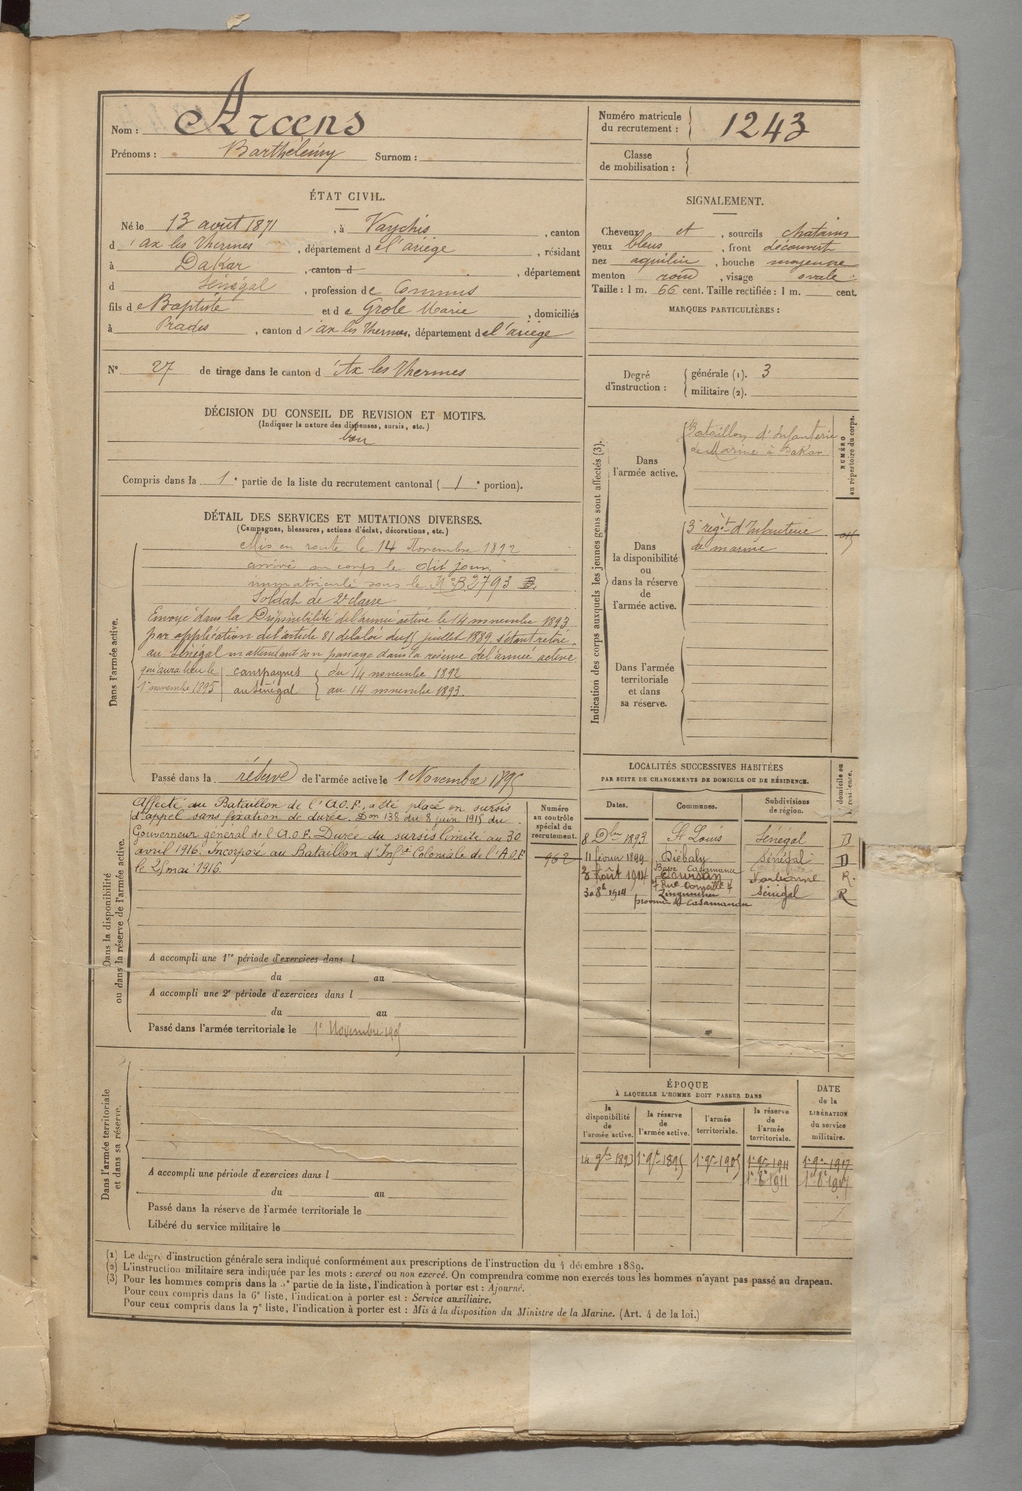 Nom : Arcens
Prénoms : Barthélémy Surnom :
Numéro matricule
du recrutement : 1243
Classe
de mobilisation :
ÉTAT CIVIL.
Né le 13 août 1871, à Vaychis, canton
d'ax les Thermes, département de l'ariège, résidant
à Dakar, canton d, département
d Sénégal, profession de Commis
fils de Baptiste et de Grole Marie, domiciliés
à Prades, canton d'ax les Thermes, département de l'ariège
N° 27 de tirage dans le canton d'Ax les Thermes
DÉCISION DU CONSEIL DE REVISION ET MOTIFS.
(Indiquer la nature des dispenses, sursis, etc.)
bon
Compris dans la 1e partie de la liste du recrutement cantonal (1e portion).
SIGNALEMENT.
Cheveux et, sourcils chatains
yeux bleus, front découvert
nez aquilin, bouche moyenne
menton rond, visage ovale
Taille : 1 m. 66 cent. Taille rectifiée : 1 m. cent.
MARQUES PARTICULIÈRES :
Degré
d'instruction :
générale (1). 3
militaire (2).
DÉTAIL DES SERVICES ET MUTATIONS DIVERSES.
(Campagnes, blessures, actions d'éclat, décorations, etc.)
Dans l'armée active.
Mis en route le 14 Novembre 1892
arrivé au corps le dit jour
immatriculé sous le N° B 2793
Soldat de 2e classe
Envoyé dans la Disponibilité de l'armée active le 14 novembre 1893
par application de l'article 81 de la loi du 15 juillet 1889 s'étant retiré
au Sénégal en attendant son passage dans la réserve de l'armée active
qui aura lieu le campagnes du 14 novembre 1892
1er novembre 1895 au Sénégal au 14 novembre 1893.
Passé dans la réserve de l'armée active le 1 Novembre 1895
Indication des corps auxquels les jeunes gens sont affectés (3).
Dans
l'armée active.
Bataillon d'Infanterie
de Marine à Dakar
NUMÉRO
au répertoire du corps.
Dans
la disponibilité
ou
dans la réserve
de
l'armée active.
3e regt d'Infanterie
de marine
Dans l'armée
territoriale
et dans
sa réserve.
Dans la disponibilité
ou dans la réserve de l'armée active.
Affecté au Bataillon de l'A.O.F, a été placé en sursis
d'appel sans fixation de durée. Don 138 du 8 juin 1915 du
Gouverneur général de l'A.O.F. Durée du sursis limité au 30
avril 1916. Incorporé au Bataillon d'Infie Coloniale de l'A.O.F
le 25 mai 1916.
Numéro
au contrôle
spécial du
recrutement.
962
A accompli une 1re période d'exercices dans l
du au
A accompli une 2e période d'exercices dans l
du au
Passé dans l'armée territoriale le 1er Novembre 1905
LOCALITÉS SUCCESSIVES HABITÉES
PAR SUITE DE CHANGEMENTS DE DOMICILE OU DE RÉSIDENCE.
Dates. Communes. Subdivisions
de région.
8 Dbre 1893 St Louis Sénégal D
11 février 1899 Diébaly Sénégal D
Basse Casamance
3 Août 1914 Coursan Narbonne R.
30 8bre 1914 Ziguinchor Sénégal R
Casamance
Dans l'armée territoriale
et dans sa réserve.
A accompli une période d'exercices dans l
du au
Passé dans la réserve de l'armée territoriale le
Libéré du service militaire le
ÉPOQUE
À LAQUELLE L'HOMME DOIT PASSER DANS
la
disponibilité
de
l'armée active.
la réserve
de
l'armée active.
l'armée
territoriale.
la réserve
de
l'armée
territoriale.
DATE
de la
LIBÉRATION
du service
militaire.
14 9bre 1893 1er 9bre 1895 1er 9bre 1905 1er 9bre 1911 1er 9bre 1917
1er 8bre 1911 1er 8bre 1917
(1) Le degré d'instruction générale sera indiqué conformément aux prescriptions de l'instruction du 4 décembre 1889.
(2) L'instruction militaire sera indiquée par les mots : exercé ou non exercé. On comprendra comme non exercés tous les hommes n'ayant pas passé au drapeau.
(3) Pour les hommes compris dans la 5e partie de la liste, l'indication à porter est : Ajourné.
Pour ceux compris dans la 6e liste, l'indication à porter est : Service auxiliaire.
Pour ceux compris dans la 7e liste, l'indication à porter est : Mis à la disposition du Ministre de la Marine. (Art. 4 de la loi.)